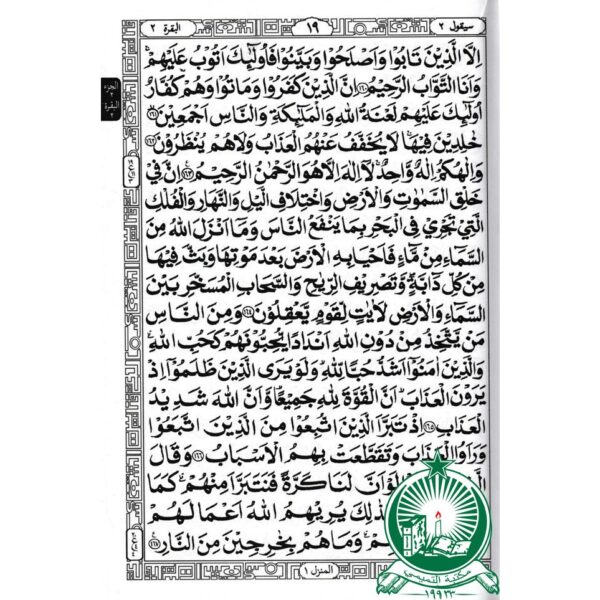 سيقول ٢ ١٩ البقرة ٢
اِلَّا الَّذِيْنَ تَابُوْا وَاَصْلَحُوْا وَبَيَّنُوْا فَاُولٰٓئِكَ اَتُوْبُ عَلَيْهِمْ ۚ
وَاَنَا التَّوَّابُ الرَّحِيْمُ ﴿١٦٠﴾ اِنَّ الَّذِيْنَ كَفَرُوْا وَمَاتُوْا وَهُمْ كُفَّارٌ
اُولٰٓئِكَ عَلَيْهِمْ لَعْنَةُ اللهِ وَالْمَلٰٓئِكَةِ وَالنَّاسِ اَجْمَعِيْنَ ﴿١٦١﴾
خٰلِدِيْنَ فِيْهَا ۚ لَا يُخَفَّفُ عَنْهُمُ الْعَذَابُ وَلَا هُمْ يُنْظَرُوْنَ ﴿١٦٢﴾
وَاِلٰهُكُمْ اِلٰهٌ وَّاحِدٌ ۚ لَآ اِلٰهَ اِلَّا هُوَ الرَّحْمٰنُ الرَّحِيْمُ ﴿١٦٣﴾ اِنَّ فِيْ
خَلْقِ السَّمٰوٰتِ وَالْاَرْضِ وَاخْتِلَافِ الَّيْلِ وَالنَّهَارِ وَالْفُلْكِ
الَّتِيْ تَجْرِيْ فِي الْبَحْرِ بِمَا يَنْفَعُ النَّاسَ وَمَآ اَنْزَلَ اللهُ مِنَ
السَّمَآءِ مِنْ مَّآءٍ فَاَحْيَا بِهِ الْاَرْضَ بَعْدَ مَوْتِهَا وَبَثَّ فِيْهَا
مِنْ كُلِّ دَآبَّةٍ ۪ وَّتَصْرِيْفِ الرِّيٰحِ وَالسَّحَابِ الْمُسَخَّرِ بَيْنَ
السَّمَآءِ وَالْاَرْضِ لَاٰيٰتٍ لِّقَوْمٍ يَّعْقِلُوْنَ ﴿١٦٤﴾ وَمِنَ النَّاسِ
مَنْ يَّتَّخِذُ مِنْ دُوْنِ اللهِ اَنْدَادًا يُّحِبُّوْنَهُمْ كَحُبِّ اللهِ ؕ
وَالَّذِيْنَ اٰمَنُوْٓا اَشَدُّ حُبًّا لِّلهِ ؕ وَلَوْ يَرَى الَّذِيْنَ ظَلَمُوْٓا اِذْ
يَرَوْنَ الْعَذَابَ ۙ اَنَّ الْقُوَّةَ لِلهِ جَمِيْعًا ۙ وَّاَنَّ اللهَ شَدِيْدُ
الْعَذَابِ ﴿١٦٥﴾ اِذْ تَبَرَّاَ الَّذِيْنَ اتُّبِعُوْا مِنَ الَّذِيْنَ اتَّبَعُوْا
وَرَاَوُا الْعَذَابَ وَتَقَطَّعَتْ بِهِمُ الْاَسْبَابُ ﴿١٦٦﴾ وَقَالَ
لَوْ اَنَّ لَنَا كَرَّةً فَنَتَبَرَّاَ مِنْهُمْ كَمَا
يُرِيْهِمُ اللهُ اَعْمَالَهُمْ
وَمَا هُمْ بِخٰرِجِيْنَ مِنَ النَّارِ ﴿١٦٧﴾
المنزل ١
الجزء ٢
البقرة ٢
مكتبة التميمي
١٩٩٢٣